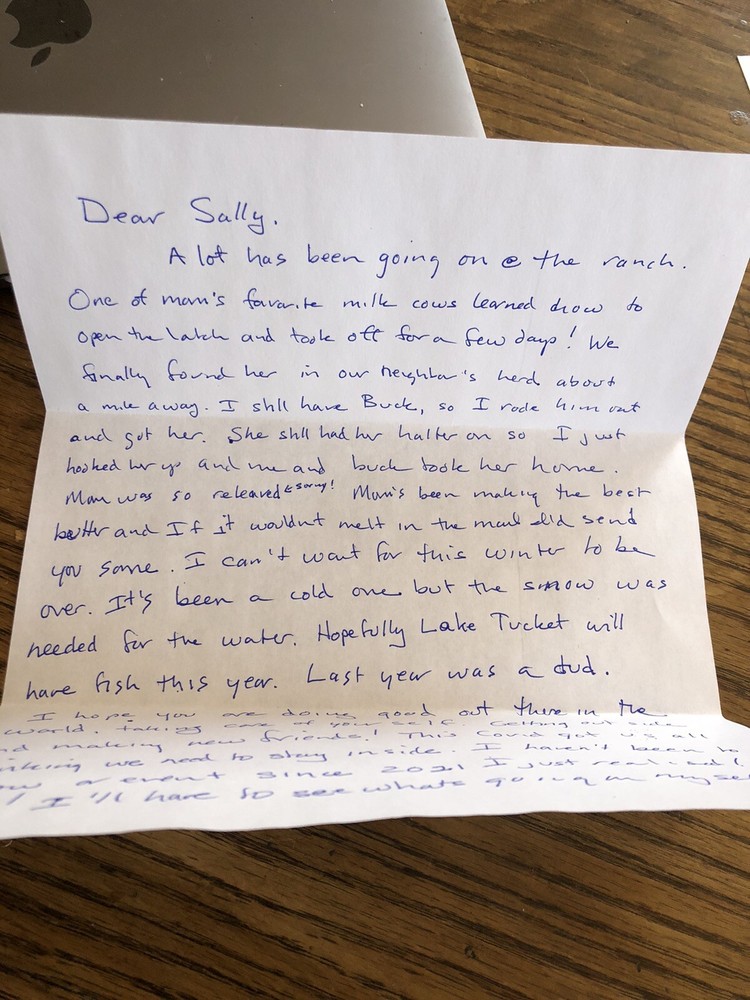 Dear Sally.
A lot has been going on @ the ranch.
One of mom's favorite milk cows learned how to
open the latch and took off for a few days! We
finally found her in our neighbor's herd about
a mile away. I still have Buck, so I rode him out
and got her. She still had her halter on so I just
hooked her up and me and buck took her home.
Mom was so releaved ← sorry! Mom's been making the best
butter and If it wouldn't melt in the mail I'd send
you some. I can't wait for this winter to be
over. It's been a cold one but the snow was
needed for the water. Hopefully Lake Tucket will
have fish this year. Last year was a dud.
I hope you are doing good out there in the
world. taking care of your self. Getting out side
and making new friends! This Covid got us all
thinking we need to stay inside. I haven't been to
event since 2021 I just realized
I'll have to see whats going on